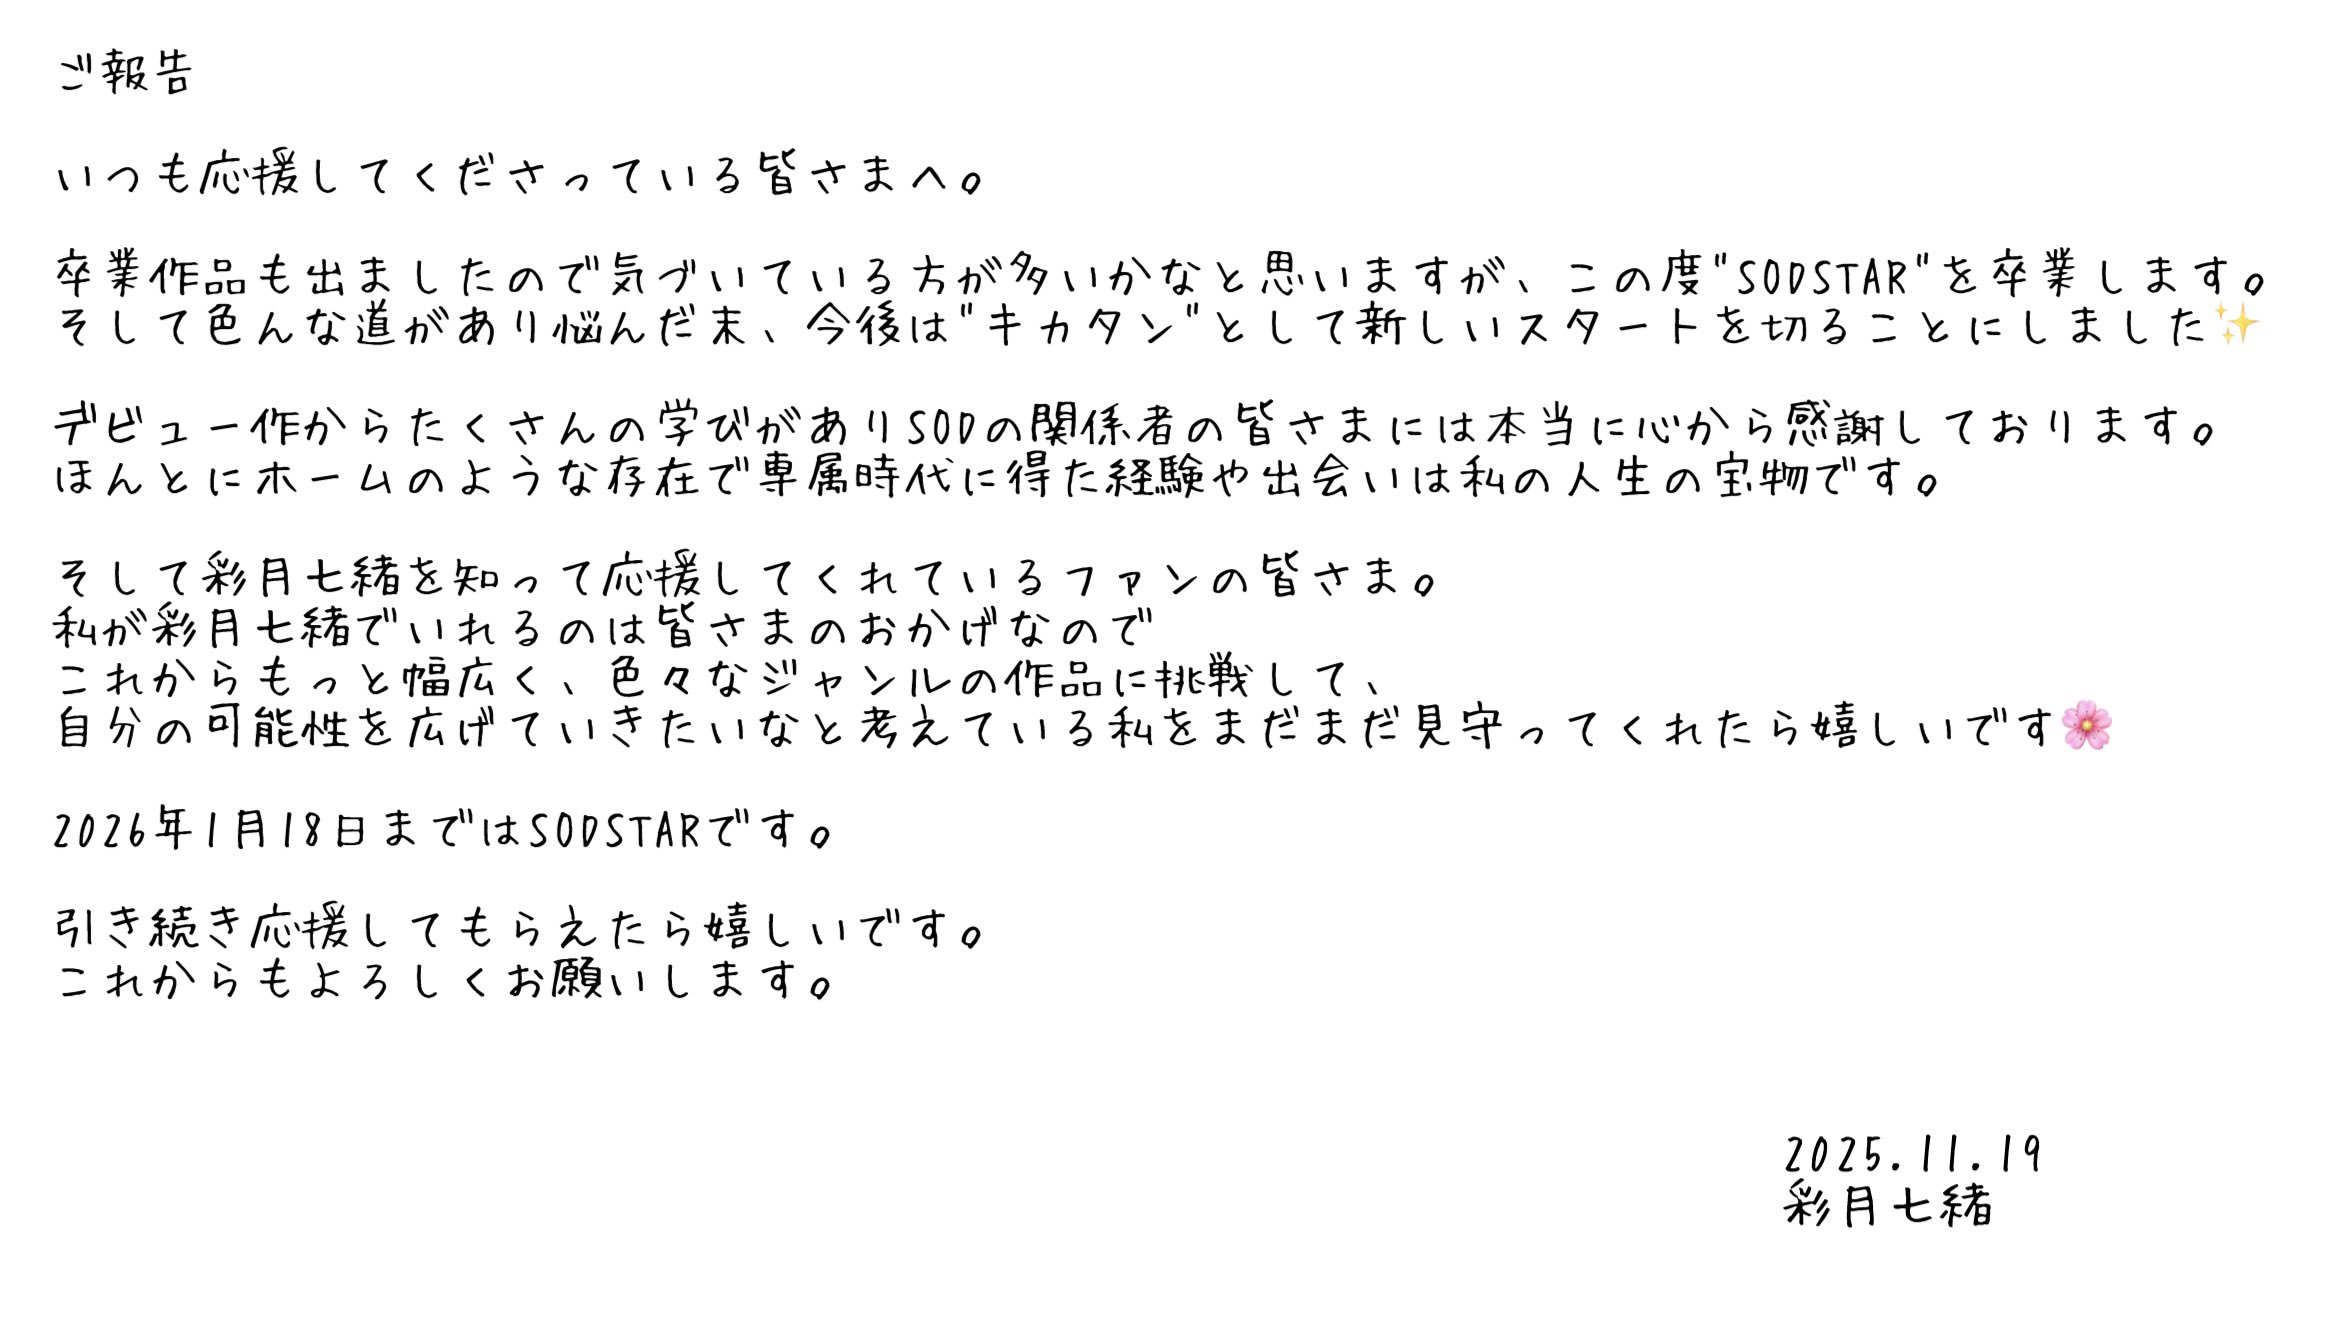 ご報告
いつも応援してくださっている皆さまへ。
卒業作品も出ましたので気づいている方が多いかなと思いますが、この度"SODSTAR"を卒業します。
そして色んな道があり悩んだ末、今後は"キカタン"として新しいスタートを切ることにしました✨
デビュー作からたくさんの学びがありSODの関係者の皆さまには本当に心から感謝しております。
ほんとにホームのような存在で専属時代に得た経験や出会いは私の人生の宝物です。
そして彩月七緒を知って応援してくれているファンの皆さま。
私が彩月七緒でいれるのは皆さまのおかげなので
これからもっと幅広く、色々なジャンルの作品に挑戦して、
自分の可能性を広げていきたいなと考えている私をまだまだ見守ってくれたら嬉しいです🌸
2026年1月18日まではSODSTARです。
引き続き応援してもらえたら嬉しいです。
これからもよろしくお願いします。
2025.11.19
彩月七緒